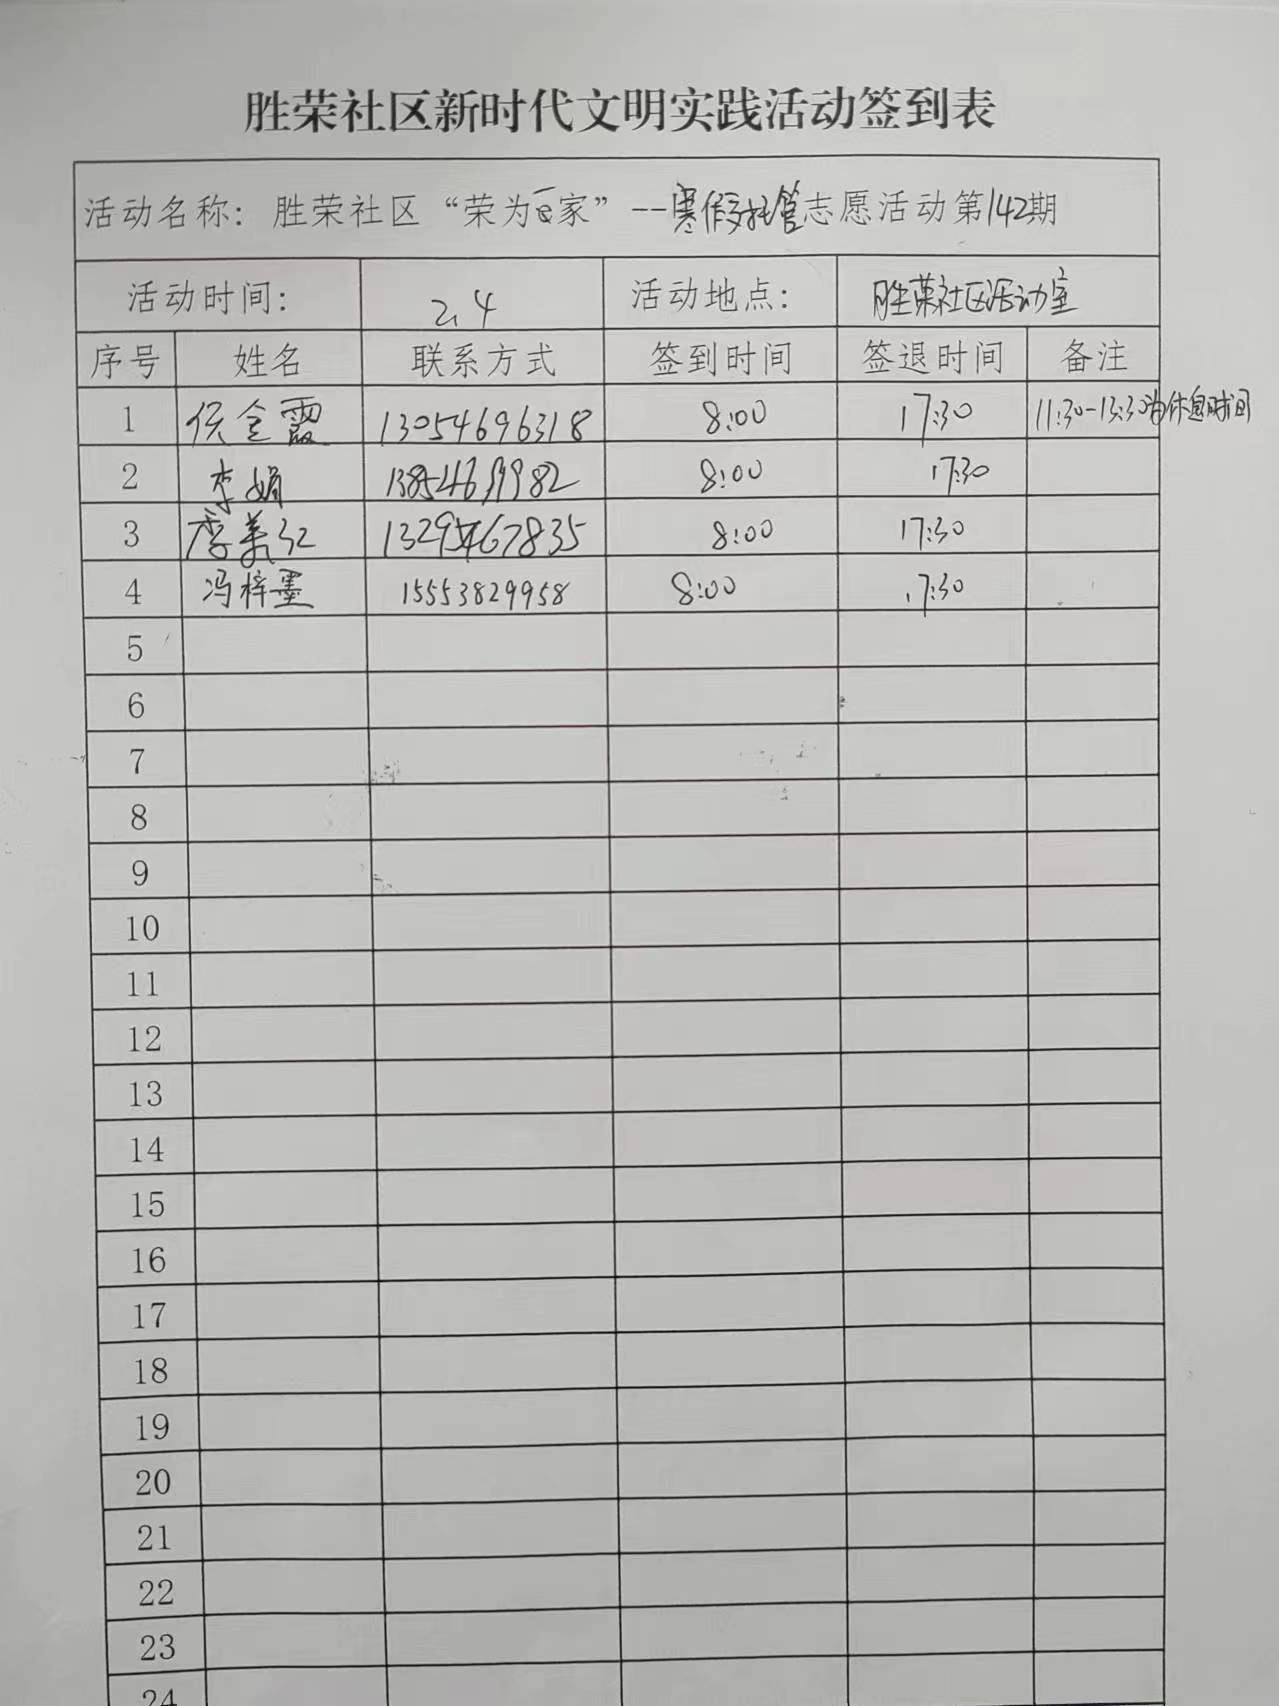 胜荣社区新时代文明实践活动签到表
活动名称：胜荣社区“荣为e家”--寒假托管志愿活动第142期
活动时间： 2.4 活动地点： 胜荣社区活动室
序号 姓名 联系方式 签到时间 签退时间 备注
1 侯金霞 13054696318 8:00 17:30 11:30-13:30为休息时间
2 李娟 8:00 17:30
3 李美红 13295467835 8:00 17:30
4 冯梓墨 15553829958 8:00 17:30
5
6
7
8
9
10
11
12
13
14
15
16
17
18
19
20
21
22
23
24